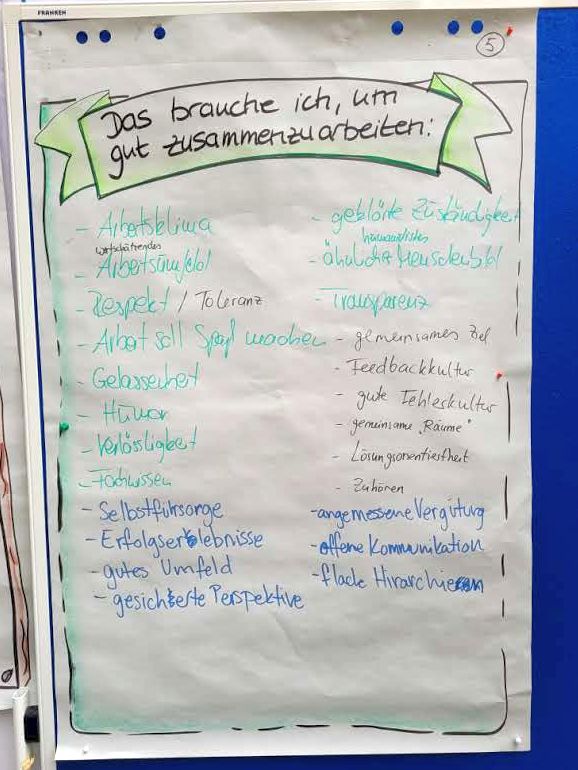 FRANKEN
5
Das brauche ich, um
gut zusammenzuarbeiten:
- Arbeitsklima
wertschätzendes
- Arbeitsumfeld
- Respekt / Toleranz
- Arbeit soll Spaß machen
- Gelassenheit
- Humor
- Verlässligkeit
- Fachwissen
- Selbstführsorge
- Erfolgserlebnisse
- gutes Umfeld
- gesicherte Perspektive
- geklärte Zuständigkeit
humanistisches
- ähnliches Menschenbild
- Transparenz
- gemeinsames Ziel
- Feedbackkultur
- gute Fehlerkultur
- gemeinsame „Räume"
- Lösungsorientiertheit
- Zuhören
- angemessene Vergütung
- offene Kommunikation
- flache Hirarchien